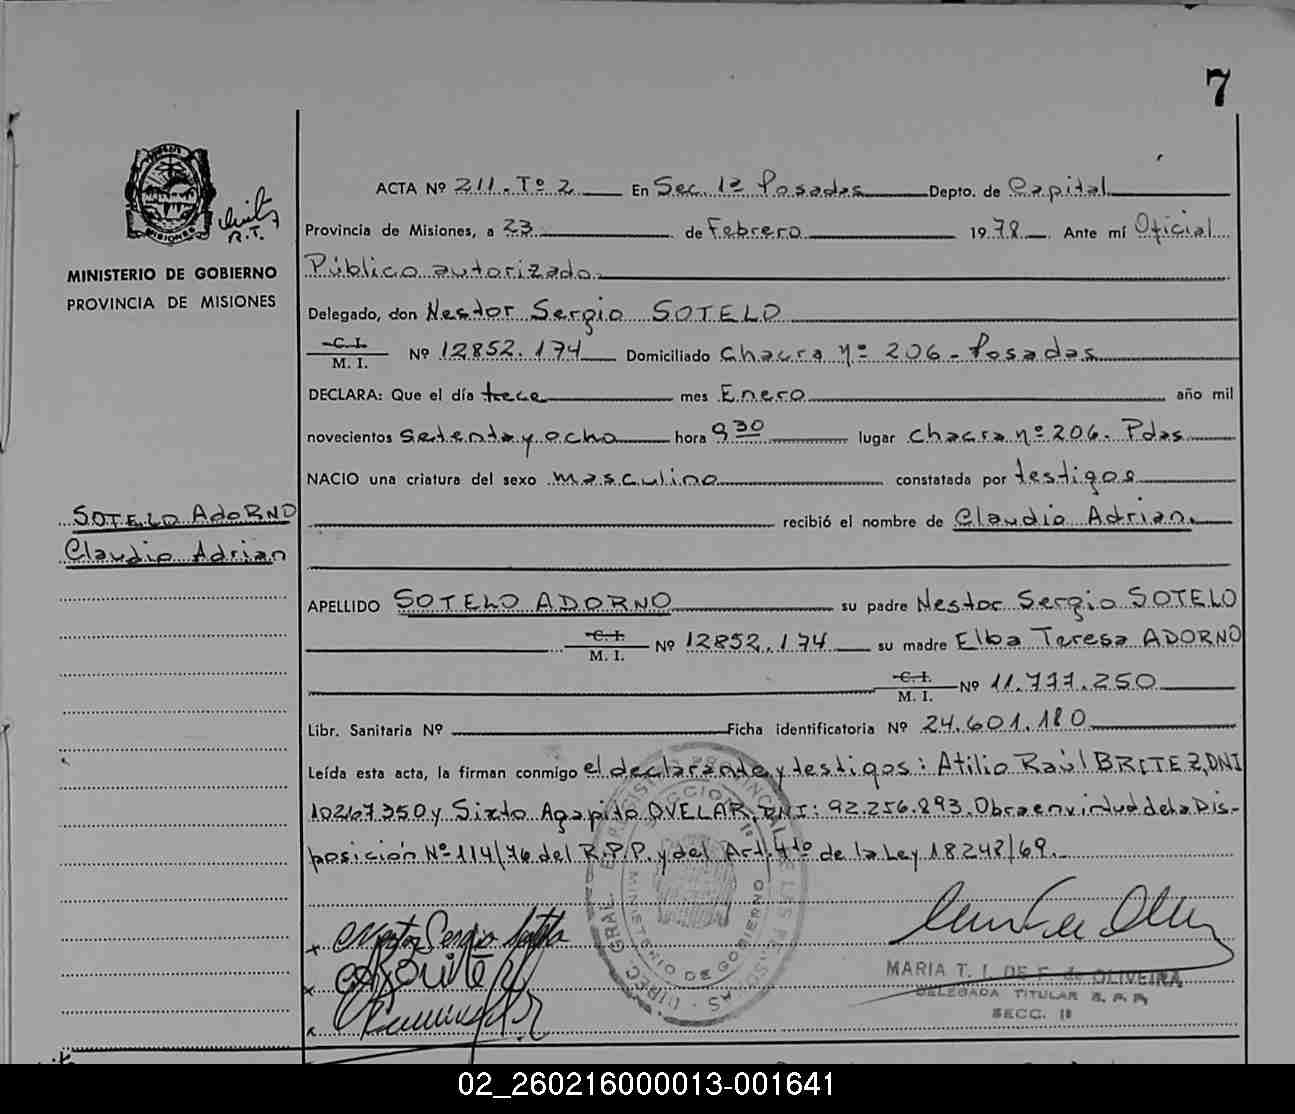 7
ACTA Nº 211. Tº 2 En Sec. 1ª Posadas Depto. de Capital
Provincia de Misiones, a 23 de Febrero 1978 Ante mí Oficial
Público autorizado.
Delegado, don Nestor Sergio SOTELO
C. I.
M. I. Nº 12852.174 Domiciliado Chacra nº 206 - Posadas
DECLARA: Que el día trece mes Enero año mil
novecientos setenta y ocho hora 9 30 lugar chacra nº 206. Pdas
NACIO una criatura del sexo masculino constatada por testigos
recibió el nombre de Claudio Adrian.
APELLIDO SOTELO ADORNO su padre Nestor Sergio SOTELO
C. I.
M. I. Nº 12852.174 su madre Elba Teresa ADORNO
C. I.
M. I. Nº 11.777.250
Libr. Sanitaria Nº Ficha identificatoria Nº 24.601.180
Leída esta acta, la firman conmigo el declarante y testigos: Atilio Raúl BRITEZ, DNI
10267350 y Sixto Agapito OVELAR, DNI: 92.256.893. Obra en virtud de la Dis-
posición Nº 114/76 del R.P.P. y del Art. 4to de la Ley 18248/69.
R.T.
MISIONES
MINISTERIO DE GOBIERNO
PROVINCIA DE MISIONES
SOTELO ADORNO
Claudio Adrian
Nestor Sergio
DIREC. GRAL.
SECCION 1ª
MINISTERIO DE GOBIERNO
MARIA T. I. DE F. de OLIVEIRA
DELEGADA TITULAR R. P. P.
SECC. 1ª
02_260216000013-001641